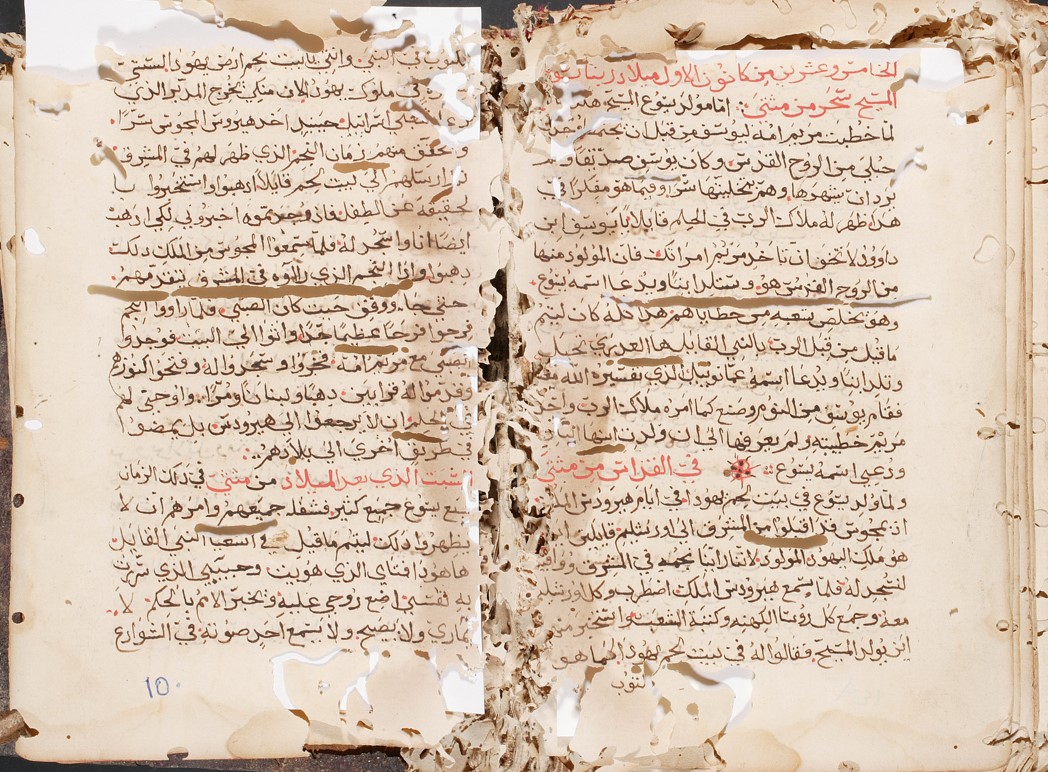 الخامس وعشرين من كانون الاول ميلاد ربنا يسوع
المسيح سحر من متى امّا مولد يسوع المسيح هكذا
لما خطبت مريم امّه ليوسف من قبل ان يجتمعا وجدت
حبلى من الروح القدس وكان يوسف صديقا ولم
يرد ان يشهدها وهمّ بتخليتها سرا وفيما هو مفكرا في
هذا ظهر له ملاك الربّ في الحلم قايلا يا يوسف ابن
داوود لا تخف ان تاخذ مريم امراتك فان المولود منها
من الروح القدس هو وستلد ابنًا ويدعا اسمه يسوع
وهو يخلص شعبه من خطاياهم هذا كله كان ليتم
ما قيل من قبل الرب بالنبي القايل ها العذري تحبل
وتلد ابنا ويدعا اسمه عمانوييل الذي تفسيره الله معنا
فقام يوسف من النوم وصنع كما امره ملاك الرب واخذ
مريم خطيبته ولم يعرفها الى ان ولدت ابنها
ودعي اسمه يسوع في القداس من متى
ولما ولد يسوع في بيت لحم يهودا في ايام هيرودس الملك
اذ مجوس قد اقبلوا من المشرق الى اورشليم قايلين اين
هو ملك اليهود المولود لاننا راينا نجمه في المشرق ووافينا
لنسجد له فلما سمع هيرودس الملك اضطرب وكل اورشليم
معه وجمع كل روسا الكهنه وكتبة الشعب واستخبر من
اين يولد المسيح فقالوا له في بيت لحم يهودا كما هو
مكتوب
مكتوب في النبي وانتي يا بيت لحم ارض يهودا لستي
في ملوك يهودا لان منك يخرج المدبر الذي
يرعى شعبي اسراييل حينيذ اخذ هيرودس المجوس سرا
وتحقق منهم زمان النجم الذي ظهر لهم في المشرق
ارسلهم الى بيت لحم قايلا اذهبوا واستخبروا
بحقيقه عن الطفل فاذ وجدتموه اخبروني لكي اذهب
ايضا انا واسجد له فلما سمعوا المجوس من الملك ذلك
ذهبوا واذا النجم الذي راوه في المشرق يتقدمهم
حتى جاء ووقف حيث كان الصبي فلما راووا النجم
فرحوا فرحا عظيما جدا واتوا الى البيت فوجدوا
الصبي مع مريم امه فخروا وسجدوا له وفتحو كنوزهم
وقدموا له قرابين دهبا ولبنانا ومرا واوحي لهم
في الحلم ان لا يرجعوا الى هيرودس بل يمضوا
في طريق اخري الى بلادهم
السبت الذي بعد الميلاد من متى في ذلك الزمان
تبع يسوع جميع كثير فشفا جميعهم وامرهم ان لا
يظهروا ذلك ليتم ما قيل في اشعيا النبي القايل
ها هوذا فتاي الذي هويت وحبيبي الذي سرّت
به نفسي اضع روحي عليه ويخبر الامم بالحكم لا
يماري ولا يصيح ولا يسمع احد صوته في الشوارع
10